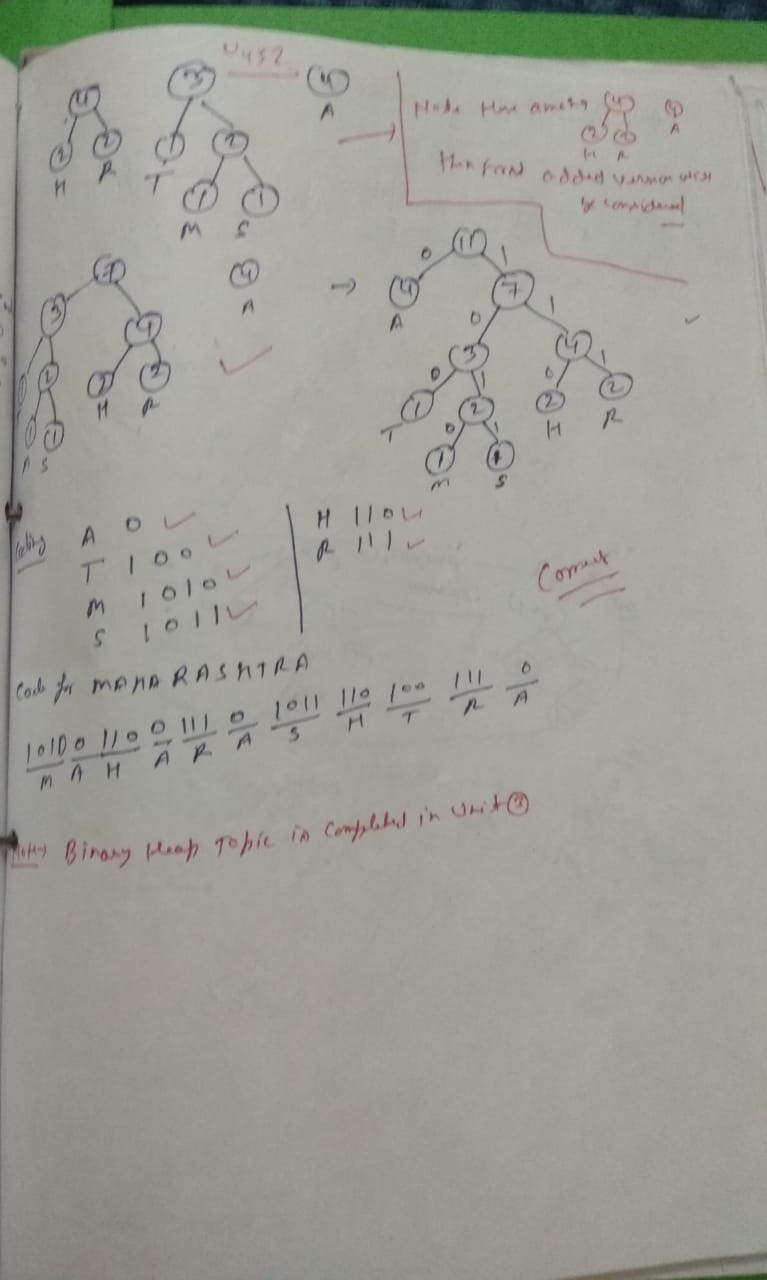 4 3 4
A
2 2 1 2
H R T
1 1
M S
Note Here among 4 4
2 2 A
H R
then first added version will
be considered
7 4
A
3 4
2 2
H R
1 1
S
0 11 1
4 7
A
0 1
3 4
0 1 0 1
1 2 2 2
T H R
0 1
1 1
M S
Coding A 0
T 100
M 1010
S 1011
H 110
R 111
Correct
Code for MAHARASHTRA
1010 0 110 0 111 0 1011 110 100 111 0
M A H A R A S H T R A
Note Binary Heap Topic is Completed in Unit 3